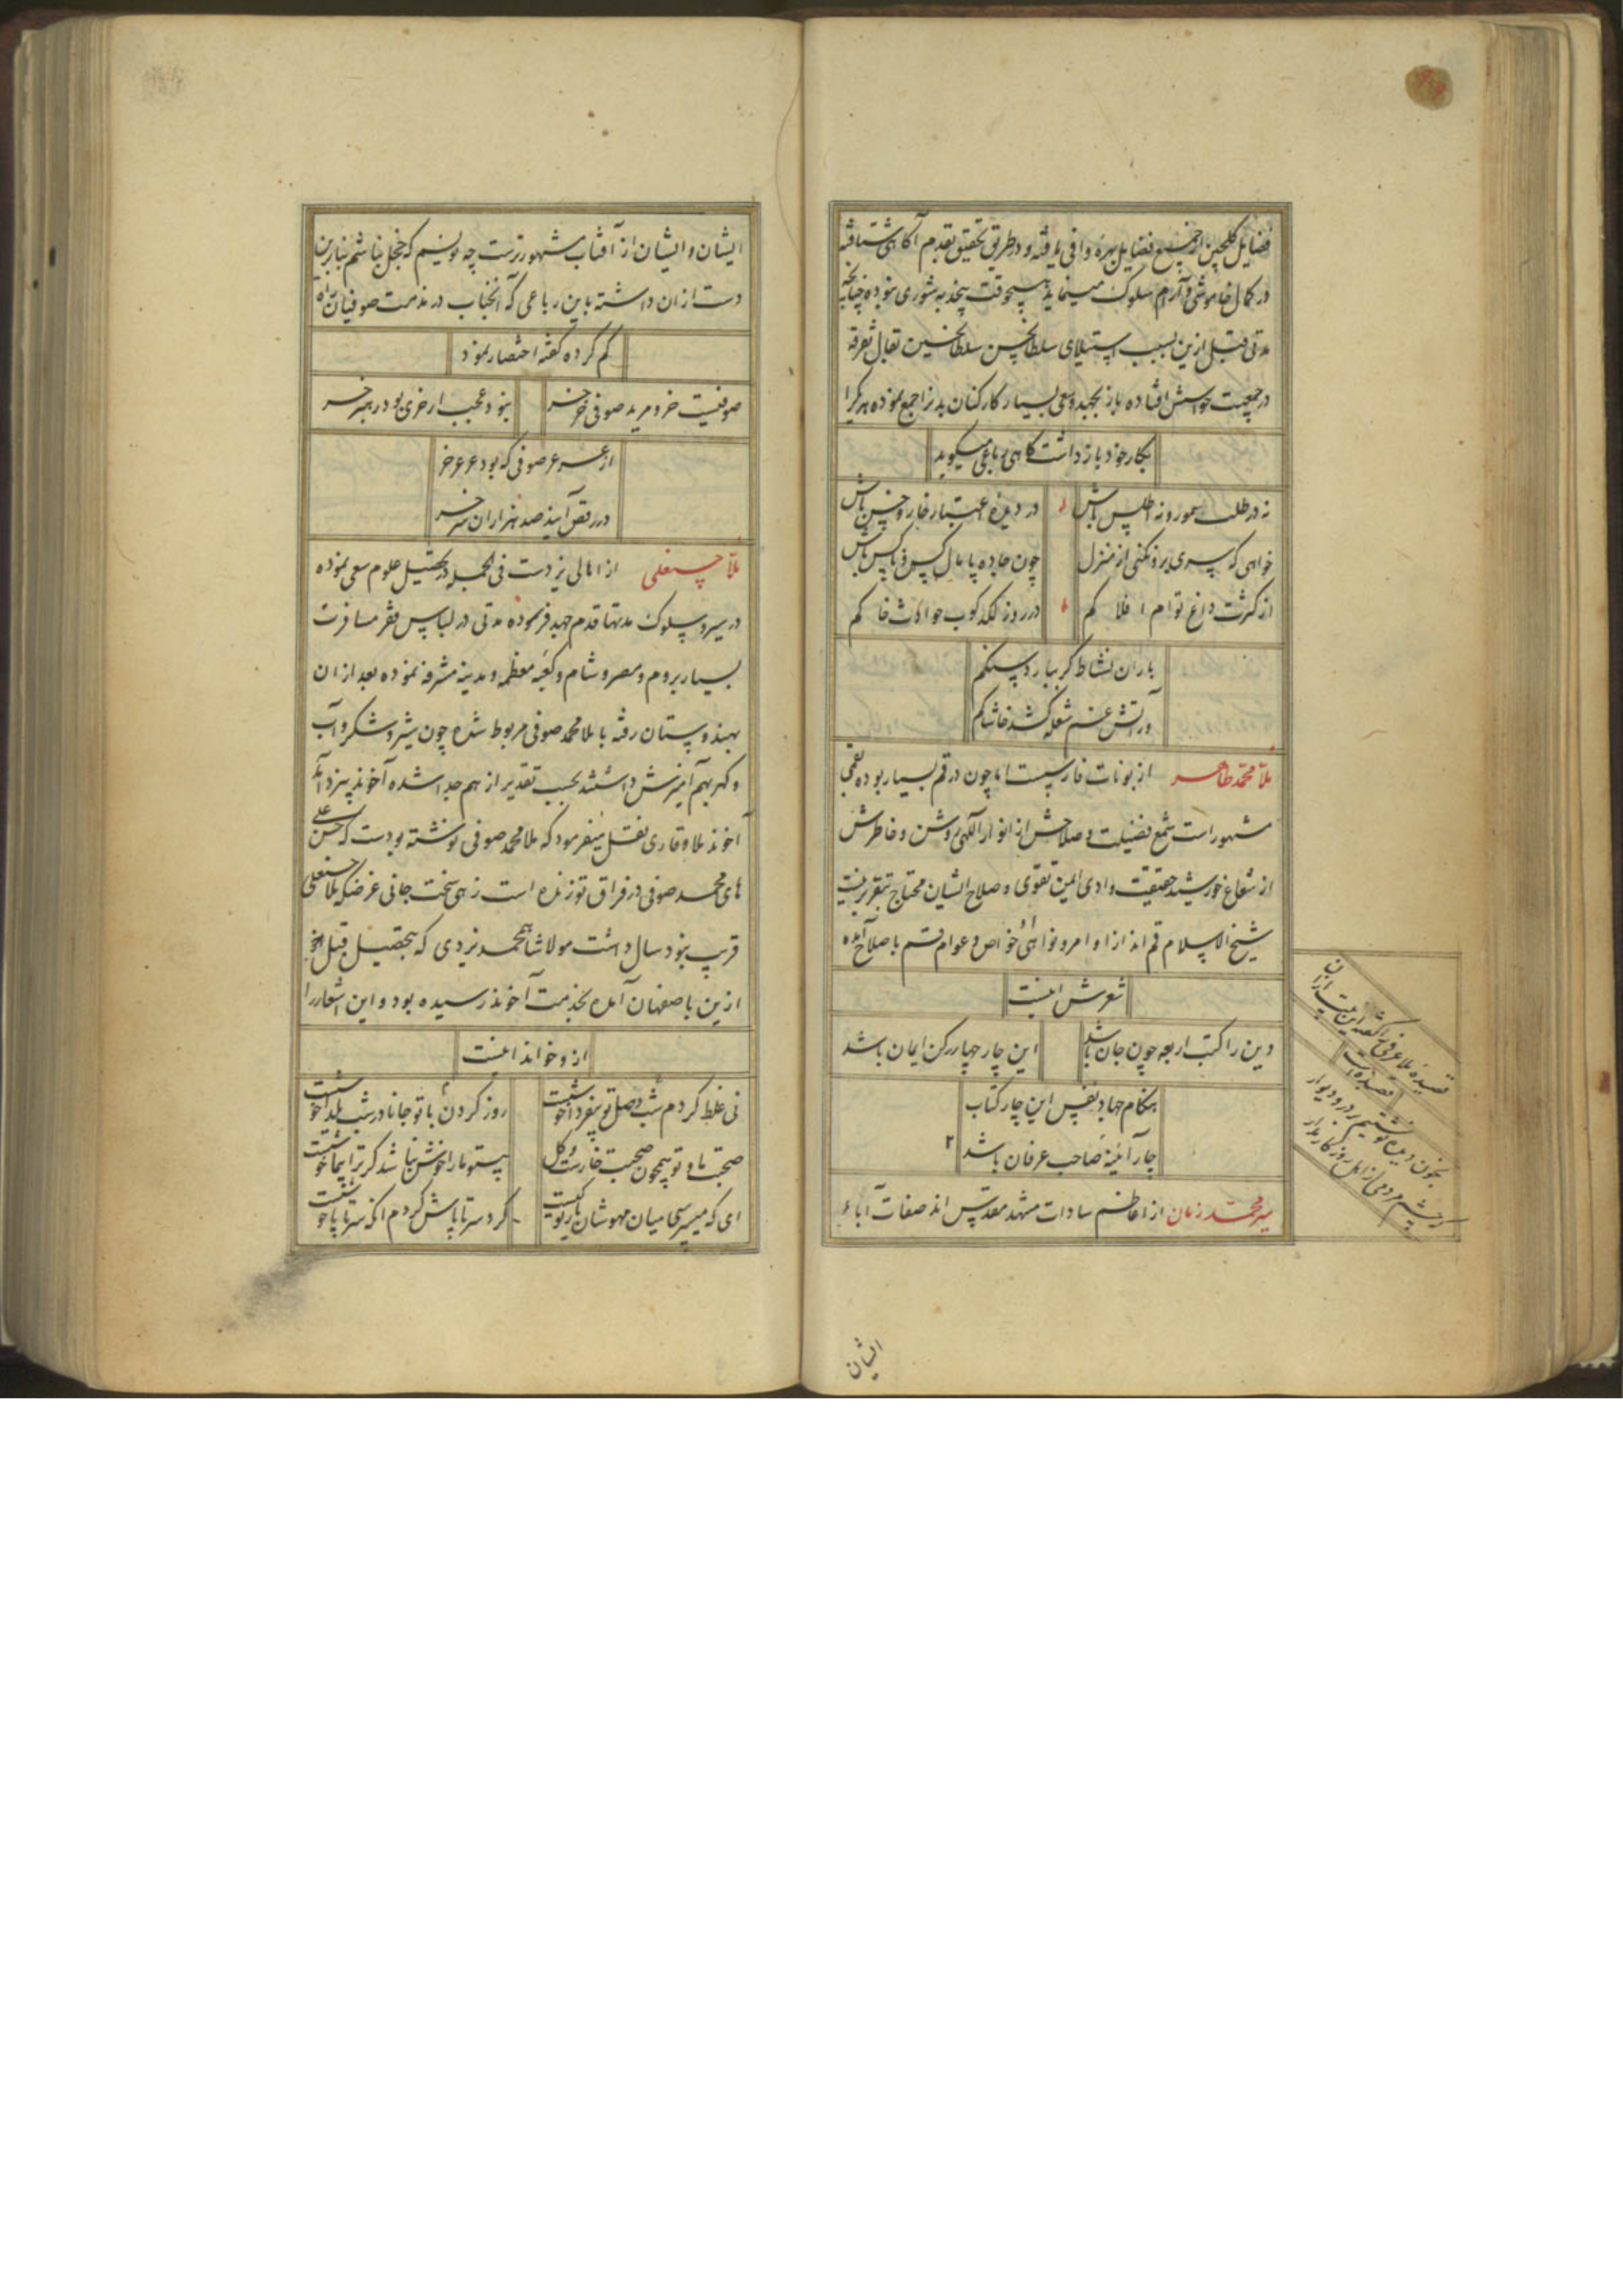 فضایل گلچین از جمیع فضایل بهره وافی یافته و در طریق تحقیق بقدم آگاهی شتافته
در کمال خاموشی و آرام سلوک مینماید هیچوقت بیجذبه شوری نبوده چنانچه
مدتی قبل ازین بسبب استیلای سلطان تفرقه
در جمعیت حواسش افتاده باز بجهد و سعی بسیار کارکنان بدن را جمع نموده هر یک را
بکار خود بازداشت گاهی رباعی میگوید
نه در طلب سمور و نه اطلس باش
در دیده اعتبار خار و خس باش
خواهی که سری برون کنی از منزل
چون جاده پامال کس و ناکس باش
از کثرت داغ توام افلاکم
در روز لگدکوب حوادث خاکم
باران نشاط گر ببارد سنگم
ور آتش غم شعله کشد خاشاکم
ملا محمد طاهر از بونات فارسست اما چون در قم بسیار بوده بقمی
مشهور است شمع فضیلت و صلاحش از انوار الهی روشن و خاطرش
از شعاع خورشید حقیقت وادی ایمن تقوی و صلاح ایشان محتاج بتقریر نیست
شیخ الاسلام قم اند از اوامر و نواهی او خواص و عوام قم باصلاح آمده
شعرش اینست
دین را کتب اربعه چون جان باشد
این چار چهار رکن ایمان باشد
هنگام جهاد نفس این چار کتاب
چار آئینه صاحب عرفان باشد
میر محمد زمان از اعاظم سادات مشهد مقدس اند صفات آباء
قصیده ملا عرفی را گفته این بیت از آن
قصیده است
بخون دیده نوشتیم بر در و دیوار
که چشم مردمی از اهل روزگار مدار
ایشان
ایشان و ایشان از آفتاب مشهورترست چه نویسم که خجل نباشم بنابرین
دست از ان داشته باین رباعی که آنجناب در مذمت صوفیان راه
گم کرده گفته اختصار نمود
صوفیست خر و مرید صوفی خر خر
نبود عجب ار خری بود رهبر خر
از عرعر صوفی که بود عرعر خر
در رقص آیند صد هزاران سر خر
ملا حسنعلی از اهالی یزدست فی الجمله در تحصیل علوم سعی نموده
در سیر و سلوک مدتها قدم جهد فرسوده مدتی در لباس فقر مسافرت
بسیار بروم و مصر و شام و کعبه معظمه و مدینه مشرفه نموده بعد از ان
بهندوستان رفته با ملا محمد صوفی مربوط شده چون شیر و شکر و آب
و گهر بهم آمیزش داشتند بحسب تقدیر از هم جدا شده آخوند بیزد آمد
آخوند ملا وقاری نقل میفرمود که ملا محمد صوفی نوشته بودست که حسن علی
های محمد صوفی در فراق تو زنده است زهی سخت جانی غرضکه ملا حسنعلی
قریب بنود سال داشت مولا شاه محمد یزدی که بتحصیل قبل
ازین باصفهان آمده بخدمت آخوند رسیده بود و این اشعار را
ازو خواند اینست
نی غلط کردم شب وصل تو بیفردا خوشست
روز کردن با تو جانا در شب یلدا خوشست
صحبت ما و تو همچون صحبت خارست و گل
بیتو ما را خوش نباشد گر ترا بیما خوشست
ای که میپرسی میان مهوشان یار تو کیست
گرد سر تا پاش گردم آنکه سر تا پا خوشست